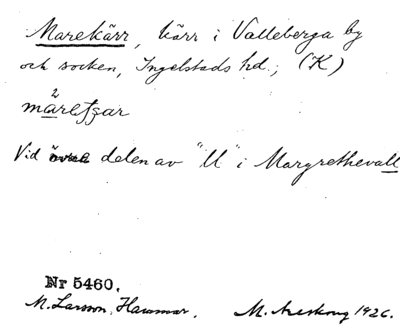 Marekärr, kärr i Valleberga by
och socken, Ingelstads hd.; (K)
2
mareʃsar
Vid övre delen av "U" i Margrethevall
Nr 5460.
M. Larsson, Hammar. M. Areskoug 1926.